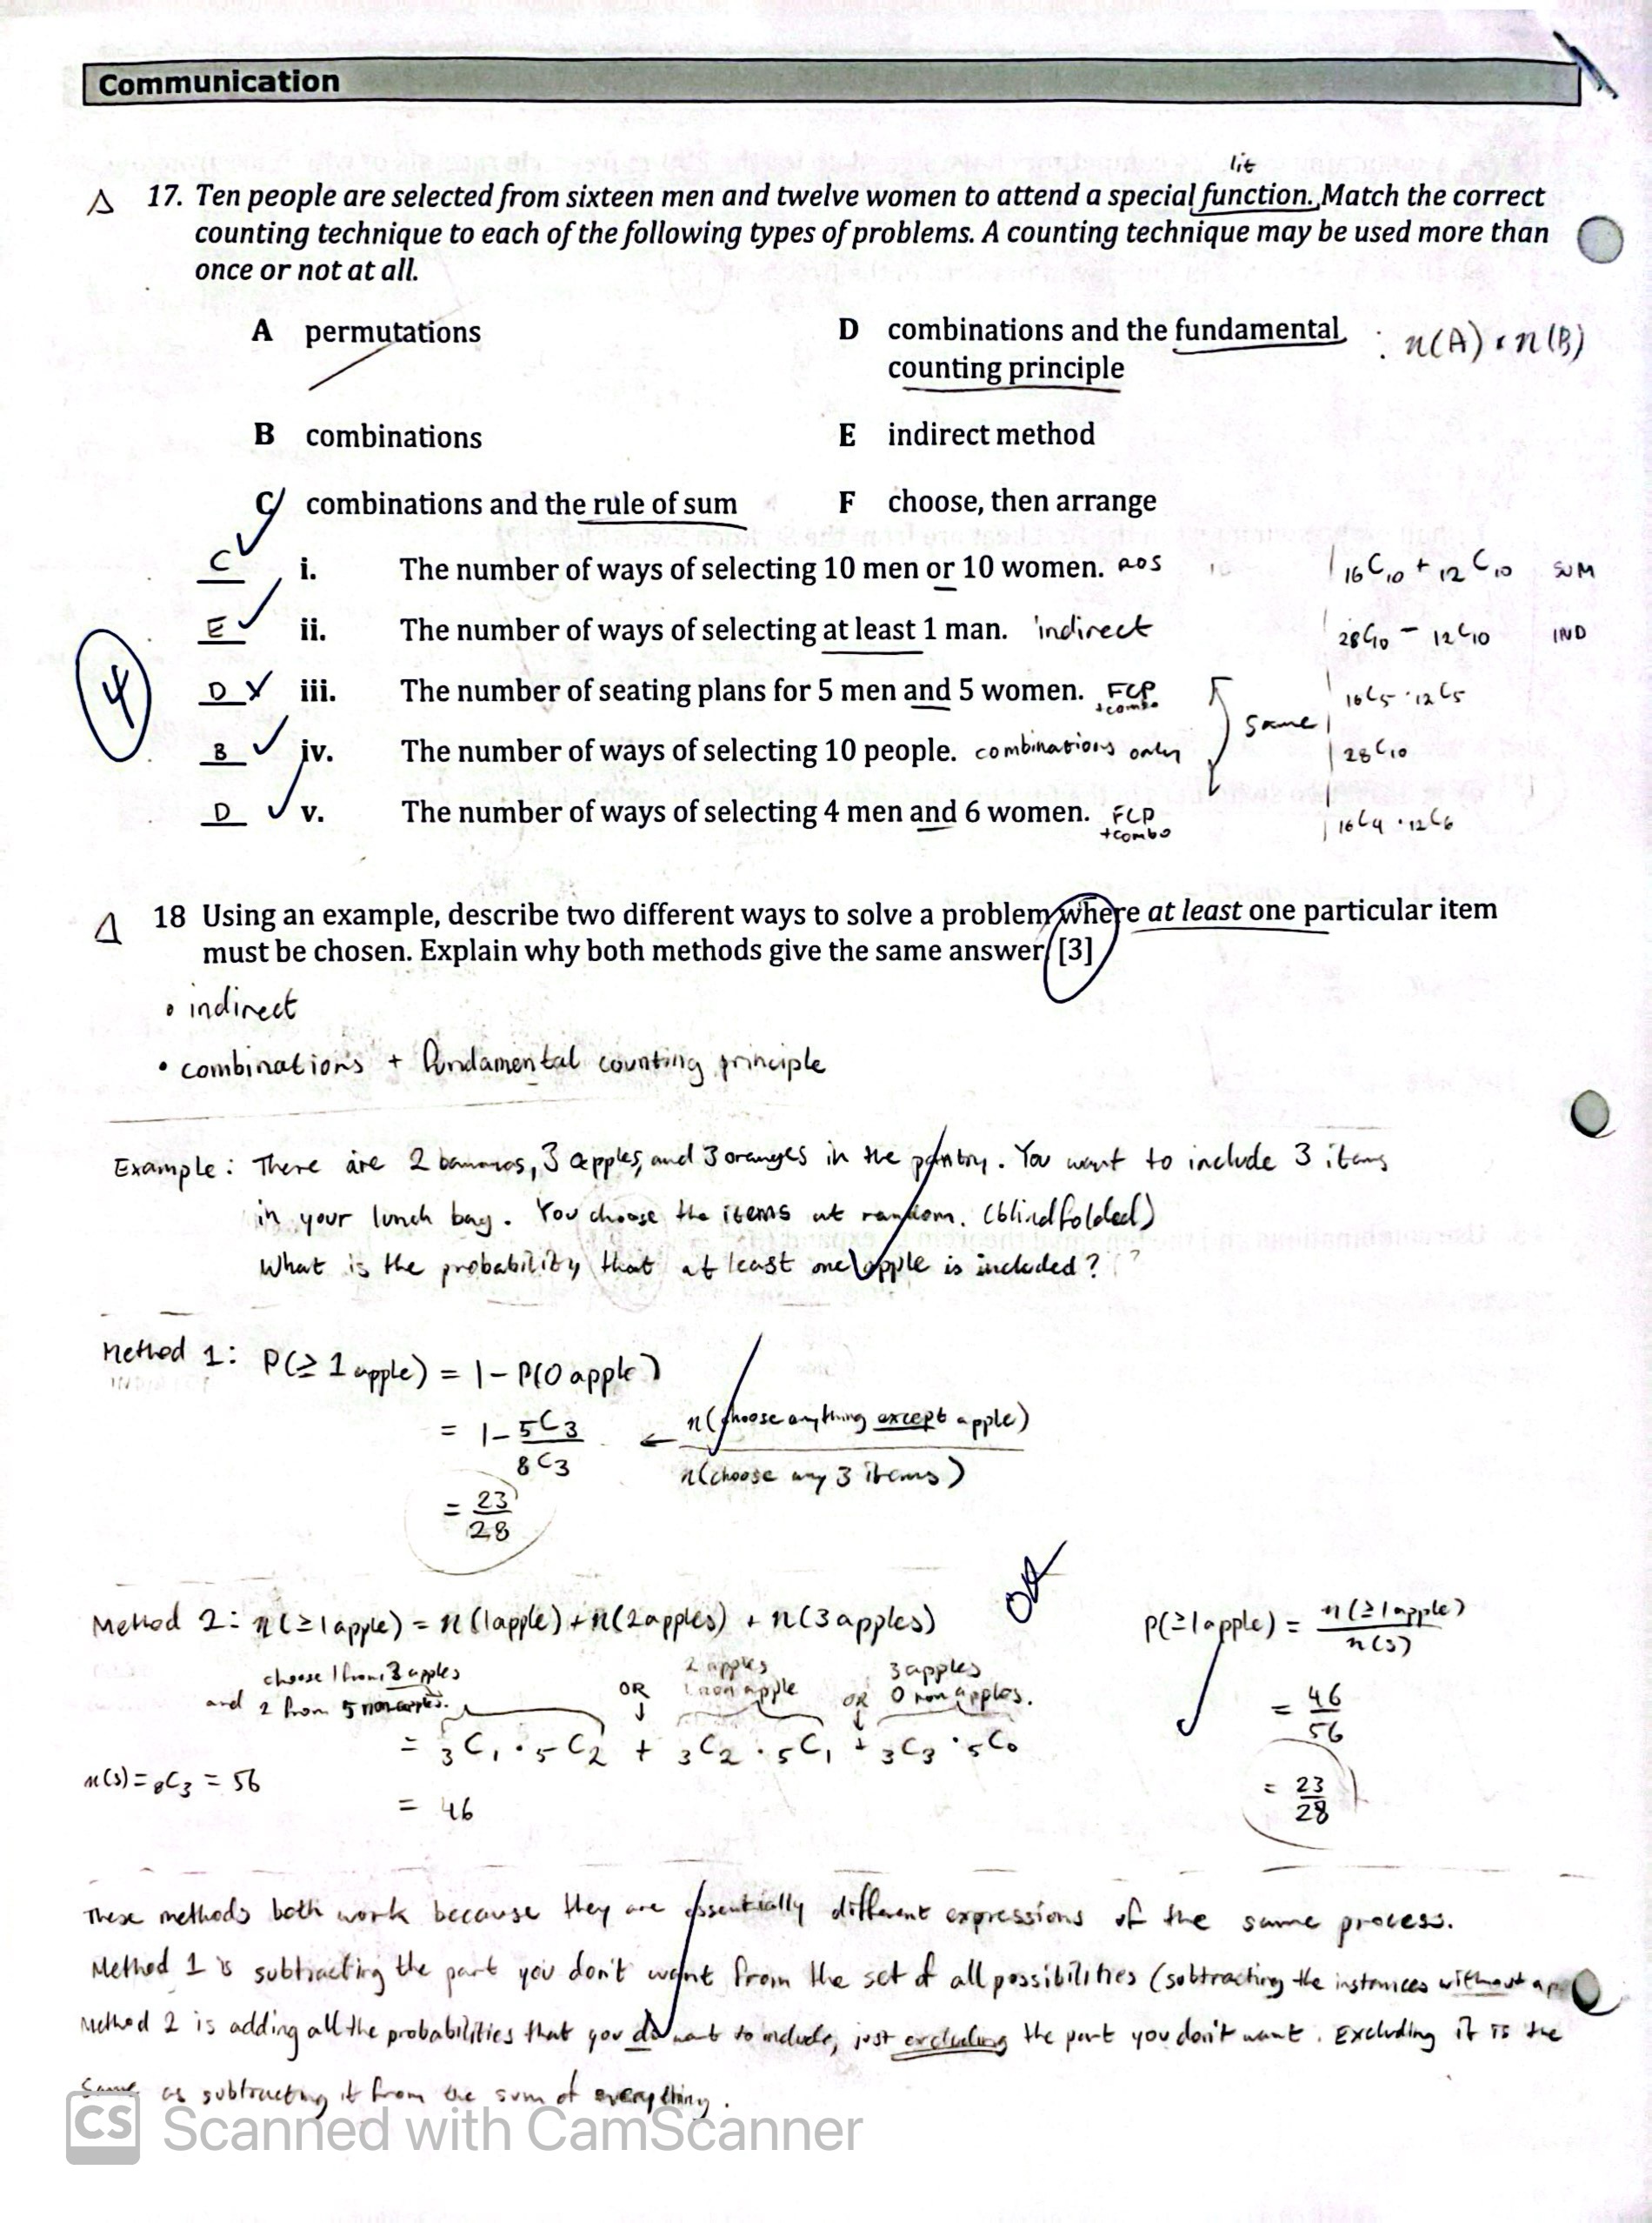 Communication
lit
17. Ten people are selected from sixteen men and twelve women to attend a special function. Match the correct
counting technique to each of the following types of problems. A counting technique may be used more than
once or not at all.
A permutations
D combinations and the fundamental : n(A) · n(B)
counting principle
B combinations
E indirect method
C combinations and the rule of sum
F choose, then arrange
C i. The number of ways of selecting 10 men or 10 women. ROS 16C10 + 12C10 SUM
E ii. The number of ways of selecting at least 1 man. indirect 28C10 - 12C10 IND
D iii. The number of seating plans for 5 men and 5 women. FCP +combo 16C5 · 12C5
4
same
B iv. The number of ways of selecting 10 people. combinations only 28C10
D v. The number of ways of selecting 4 men and 6 women. FCP +combo 16C4 · 12C6
18 Using an example, describe two different ways to solve a problem where at least one particular item
must be chosen. Explain why both methods give the same answer [3]
• indirect
• combinations + fundamental counting principle
Example: There are 2 bananas, 3 apples, and 3 oranges in the pantry. You want to include 3 items
in your lunch bag. You choose the items at random. (blindfolded)
What is the probability that at least one apple is included?
Method 1: P(≥ 1 apple) = 1 - P(0 apple)
= 1 - 5C3/8C3 ← n(choose anything except apple)/n(choose any 3 items)
= 23/28
OR
Method 2: n(≥1 apple) = n(1 apple) + n(2 apples) + n(3 apples)
P(≥1 apple) = n(≥1 apple)/n(s)
choose 1 from 3 apples
and 2 from 5 non apples.
OR
2 apples
1 non apple
OR
3 apples
0 non apples.
= 3C1 · 5C2 + 3C2 · 5C1 + 3C3 · 5C0
= 46/56
n(s) = 8C3 = 56
= 46
= 23/28
These methods both work because they are essentially different expressions of the same process.
Method 1 is subtracting the part you don't want from the set of all possibilities (subtracting the instances without
Method 2 is adding all the probabilities that you do want to include, just excluding the part you don't want. Excluding it is the
same as subtracting it from the sum of everything.
CS Scanned with CamScanner